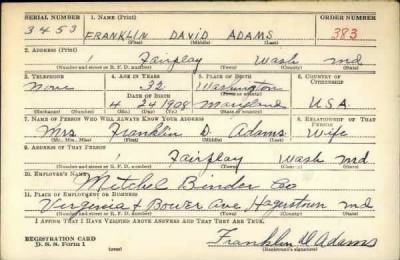 SERIAL NUMBER 1. NAME (Print) ORDER NUMBER
3453 FRANKLIN DAVID ADAMS 383
(First) (Middle) (Last)
2. ADDRESS (Print)
Fairplay Wash Md
(Number and street or R. F. D. number) (Town) (County) (State)
3. TELEPHONE 4. AGE IN YEARS 5. PLACE OF BIRTH 6. COUNTRY OF CITIZENSHIP
None 32 Washington
DATE OF BIRTH (Town or county)
4 24 1908 Maryland U.S.A.
(Exchange) (No.) (Mo.) (Day) (Yr.) (State or country)
7. NAME OF PERSON WHO WILL ALWAYS KNOW YOUR ADDRESS 8. RELATIONSHIP OF THAT PERSON
Mrs Franklin D. Adams Wife
(Mr., Mrs., Miss) (First) (Middle) (Last)
9. ADDRESS OF THAT PERSON
Fairplay Wash Md
(Number and street or R. F. D. number) (Town) (County) (State)
10. EMPLOYER'S NAME
Mitchel Binder Co
11. PLACE OF EMPLOYMENT OR BUSINESS
Virginia & Bower Ave Hagerstown Md
(Number and street or R. F. D. number) (Town) (County) (State)
I AFFIRM THAT I HAVE VERIFIED ABOVE ANSWERS AND THAT THEY ARE TRUE.
REGISTRATION CARD
D. S. S. Form 1 (over)
Franklin D Adams
(Registrant's signature)